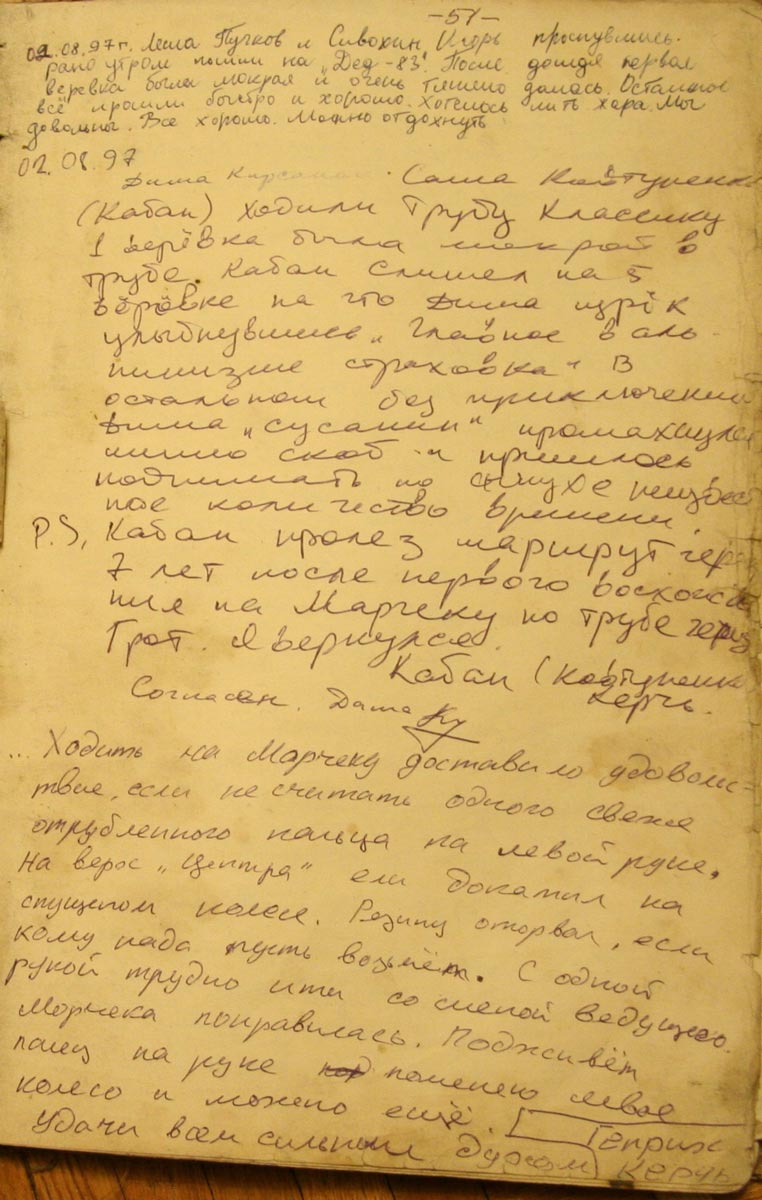 -51-
02.08.97г. Леша Пучков и Сивохин Игорь проснувшись
рано утром пошли на „Дед-83". После дождя первая
веревка была мокрая и очень тяжело далась. Остальное
всё прошли быстро и хорошо. Хотелось лить хара. Мы
довольны. Все хорошо. Можно отдохнуть
02.08.97
Дима Саша
(Кабан) ходили Трубу Классику
1 верёвка была мокрой в
трубе. Кабан слишел на 5
вёрёвке на что Дима изрёк
улыбнувшись „Главное в аль-
пинизме страховка" В
остальном без приключений
Дима „сусанин" промахнулся
мимо скоб и пришлось
подпимать по сыпухе неизвест
ное количество времени.
P.S, Кабан пролез маршрут через
7 лет после первого восхожде
ния на Марчеку по трубе через
Грот. Я вернулся.
Кабан (
Керчь.
Согласен. Дима
... Ходить на Марчеку доставило удоволь-
твие, если не считать одного свеже
отрубленного пальца на левой руке.
На верос „Центра" ели докатил на
спущеном колесе. Резину оторвал, если
кому нада пусть возьмёт. С одной
рукой трудно ити со сменой ведущего.
Морчека понравилась. Подживёт
палец на руке поменяю левое
колесо и можно ещё. Генрих
Удачи всем сильным духом) Керчь